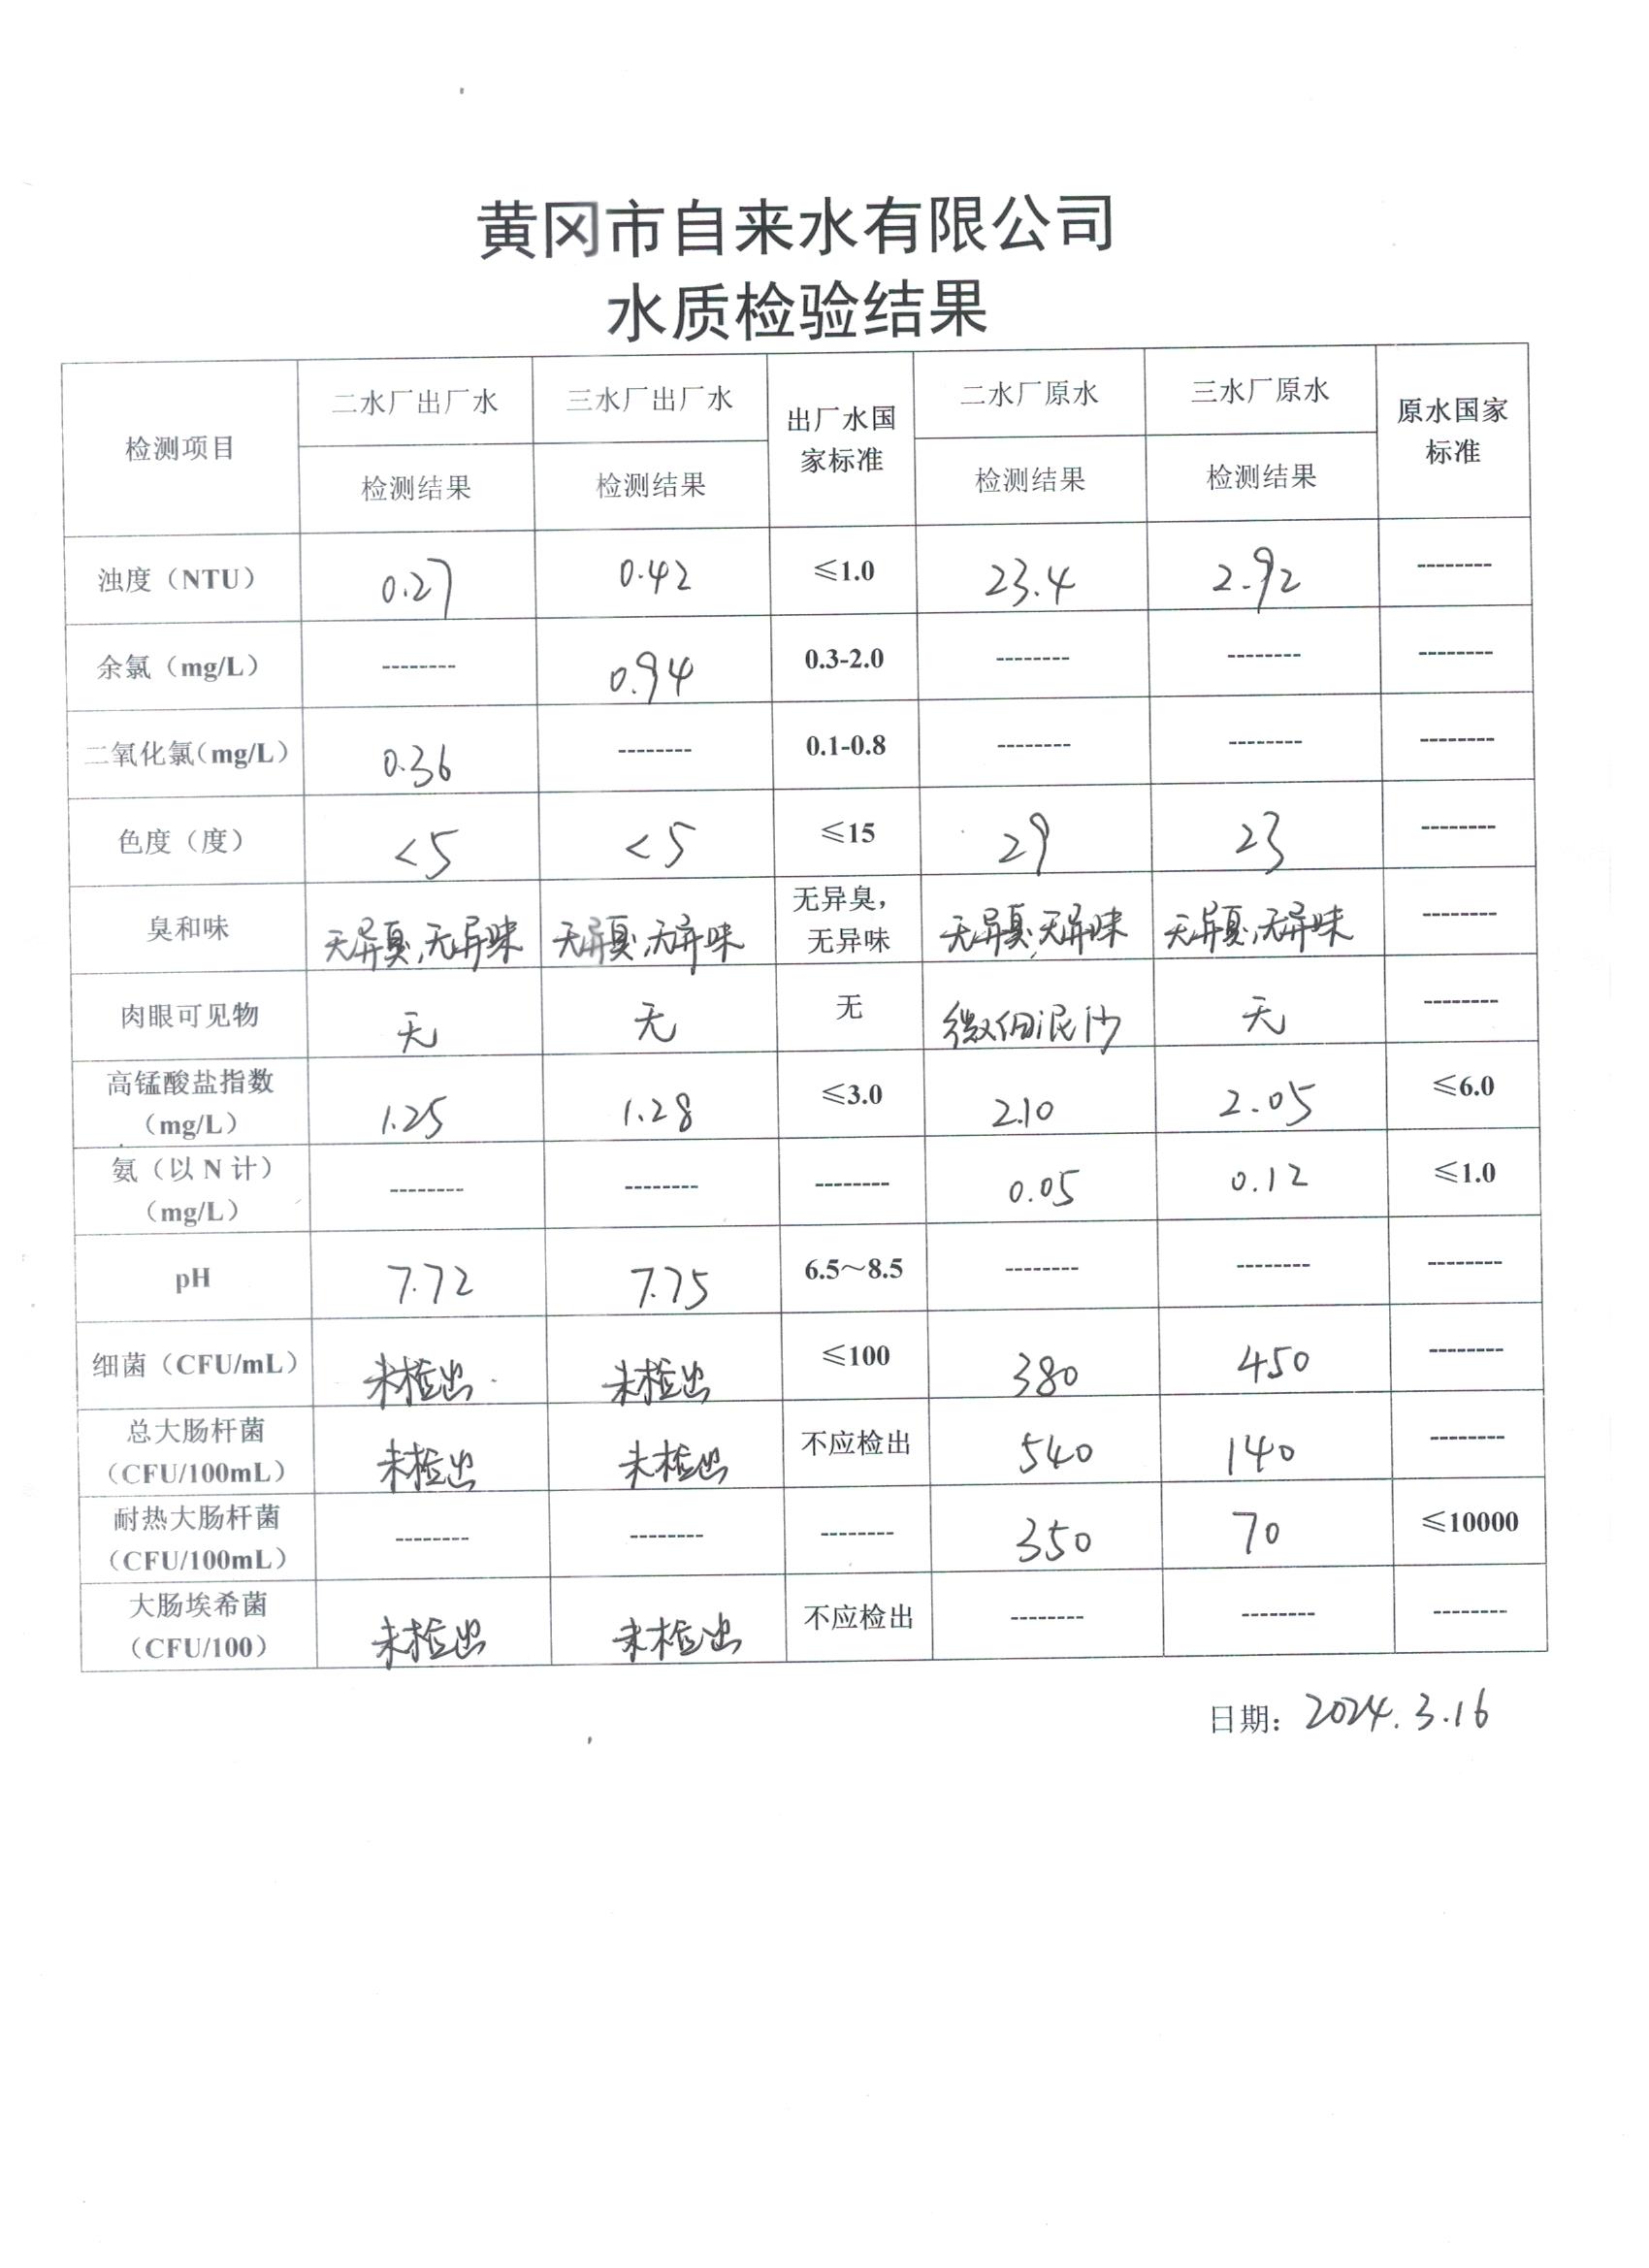 黄冈市自来水有限公司
水质检验结果
检测项目 二水厂出厂水 三水厂出厂水 出厂水国家标准 二水厂原水 三水厂原水 原水国家标准
检测结果 检测结果 检测结果 检测结果
浊度（NTU） 0.27 0.42 ≤1.0 23.4 2.92 --------
余氯（mg/L） -------- 0.94 0.3-2.0 -------- -------- --------
二氧化氯（mg/L） 0.36 -------- 0.1-0.8 -------- -------- --------
色度（度） <5 <5 ≤15 29 23 --------
臭和味 无异臭,无异味 无异臭,无异味 无异臭，无异味 无异臭,无异味 无异臭,无异味 --------
肉眼可见物 无 无 无 微细泥沙 无 --------
高锰酸盐指数（mg/L） 1.25 1.28 ≤3.0 2.10 2.05 ≤6.0
氨（以 N 计）（mg/L） -------- -------- -------- 0.05 0.12 ≤1.0
pH 7.72 7.75 6.5～8.5 -------- -------- --------
细菌（CFU/mL） 未检出 未检出 ≤100 380 450 --------
总大肠杆菌（CFU/100mL） 未检出 未检出 不应检出 540 140 --------
耐热大肠杆菌（CFU/100mL） -------- -------- -------- 350 70 ≤10000
大肠埃希菌（CFU/100） 未检出 未检出 不应检出 -------- -------- --------
日期：2024.3.16